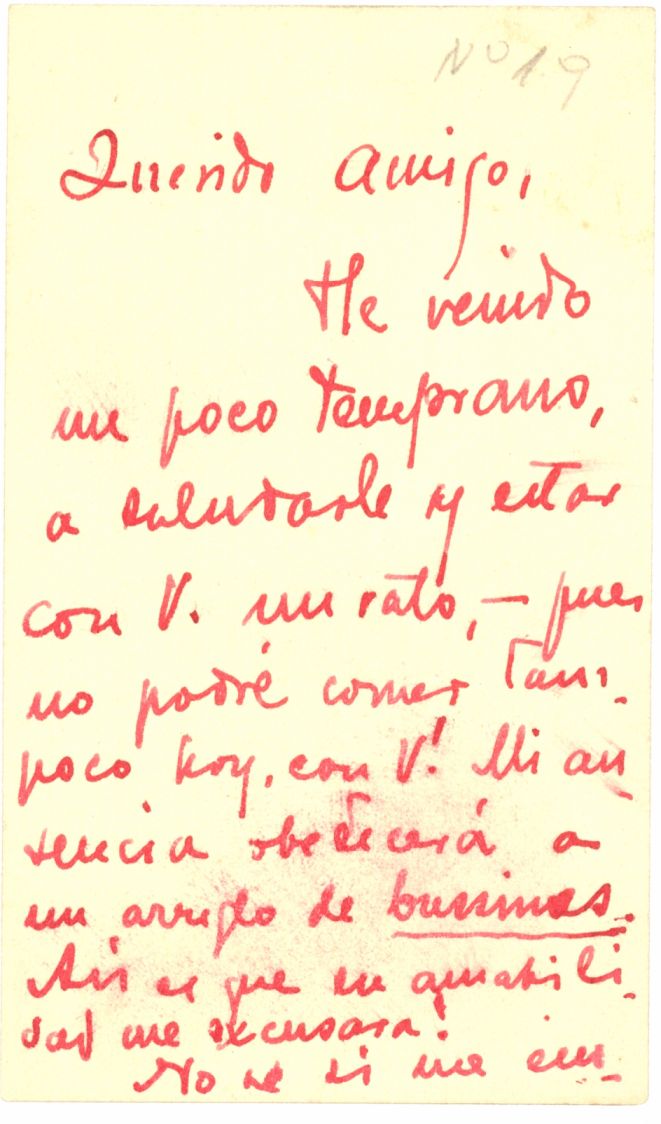 Nº 19
Querido amigo,
He venido
un poco temprano,
a saludarle y estar
con V. un rato, — pues
no podré comer tam-
poco hoy, con V! Mi au
sencia obedecerá a
un arreglo de bussines.
Asi es que su amabili-
dad me excusara!
No se si me em-